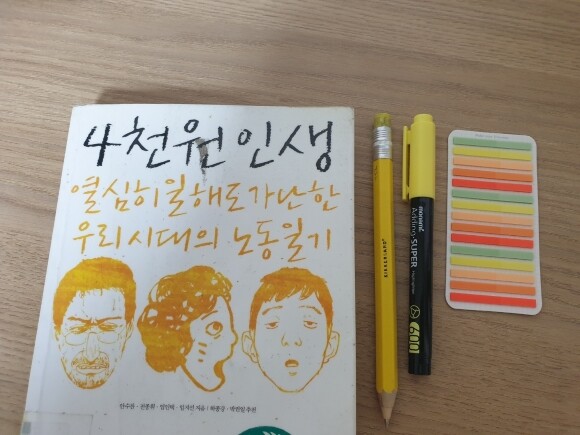 4천원 인생
열심히 일해도 가난한
우리 시대의 노동일기
안수찬 · 전종휘 · 임인택 · 임지선 지음 | 하종강 · 박권일 추천
monami
Adding-SUPER